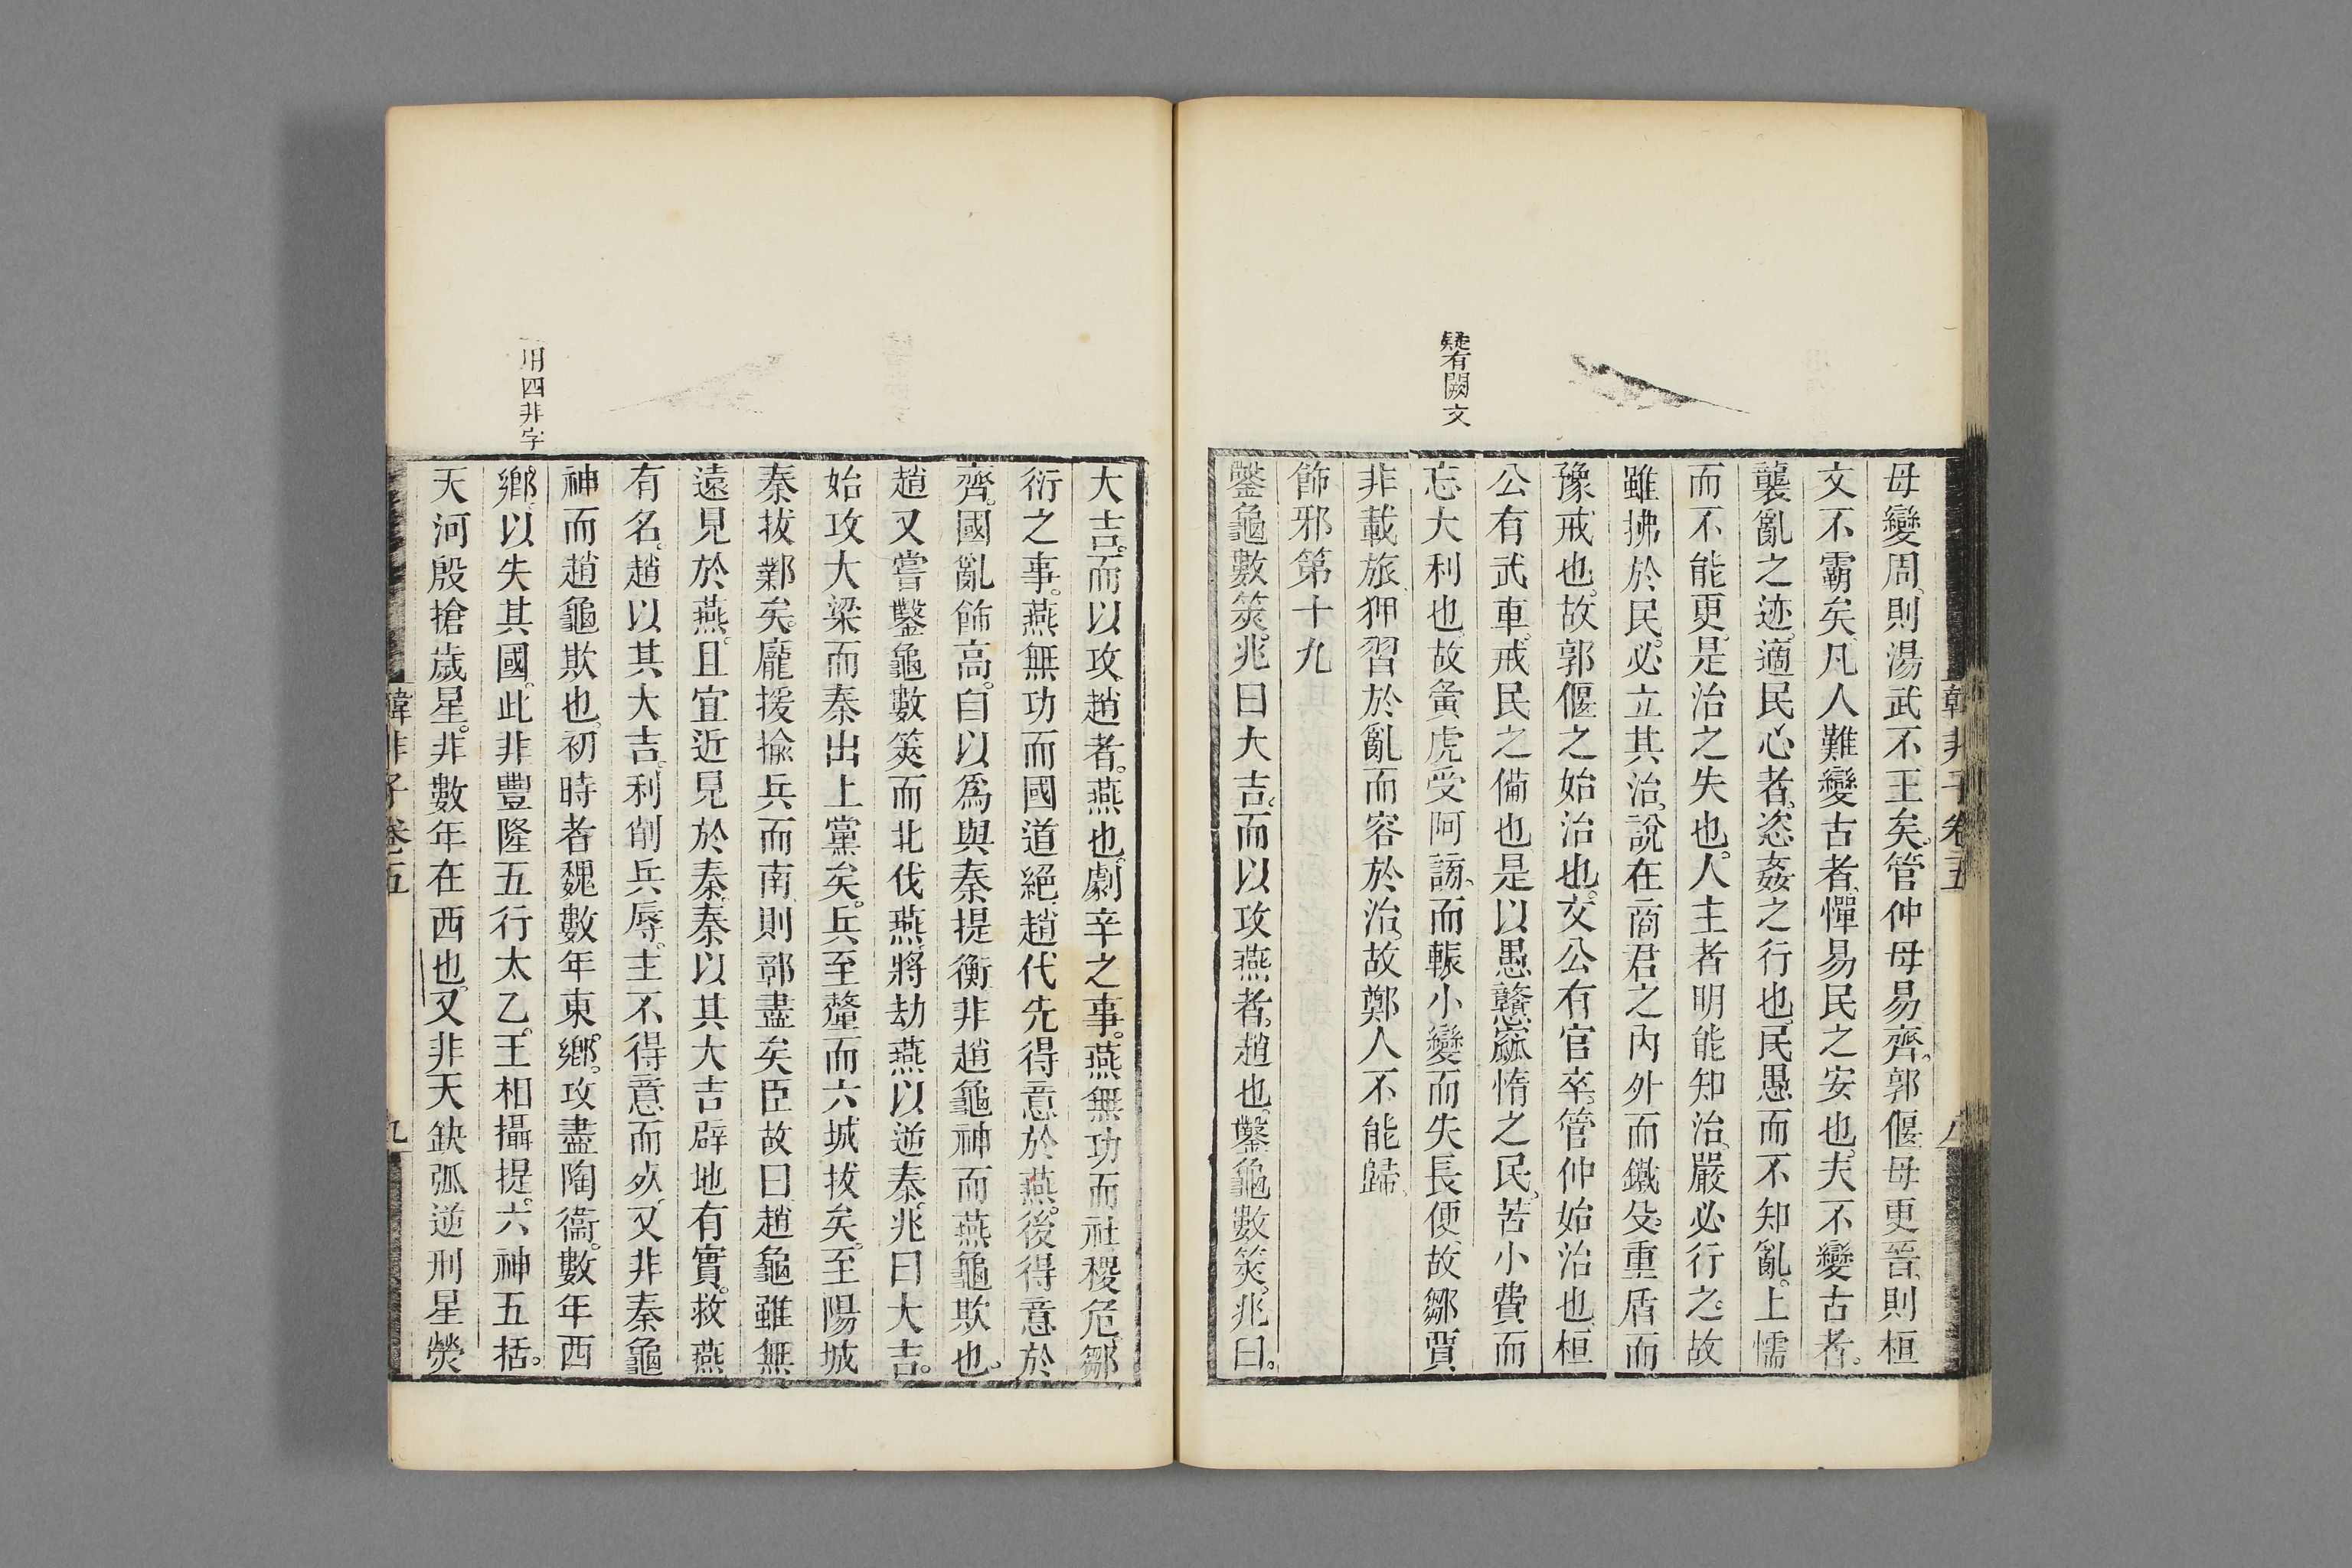 韓非子卷五
八
疑有闕文
母變周則湯武不王矣管仲母易齊郭偃母更晉則桓
文不霸矣凡人難變古者憚易民之安也夫不變古者
襲亂之迹適民心者恣姦之行也民愚而不知亂上懦
而不能更是治之失也人主者明能知治嚴必行之故
雖拂於民必立其治說在商君之內外而鐵殳重盾而
豫戒也故郭偃之始治也文公有官卒管仲始治也桓
公有武車戒民之備也是以愚戇窳惰之民苦小費而
忘大利也故夤虎受阿謗而輾小變而失長便故鄒賈
非載旅狎習於亂而容於治故鄭人不能歸
飾邪第十九
鑿龜數筴兆曰大吉而以攻燕者趙也鑿龜數筴兆曰
用四非字
大吉而以攻趙者燕也劇辛之事燕無功而社稷危鄒
衍之事燕無功而國道絕趙代先得意於燕後得意於
齊國亂飾高自以爲與秦提衡非趙龜神而燕龜欺也
趙又嘗鑿龜數筴而北伐燕將劫燕以逆秦兆曰大吉
始攻大梁而秦出上黨矣兵至釐而六城拔矣至陽城
秦拔鄴矣龐援揄兵而南則鄣盡矣臣故曰趙龜雖無
遠見於燕且宜近見於秦秦以其大吉辟地有實救燕
有名趙以其大吉利削兵辱主不得意而死又非秦龜
神而趙龜欺也初時者魏數年東鄉攻盡陶衞數年西
鄉以失其國此非豐隆五行太乙王相攝提六神五括
天河殷搶歲星非數年在西也又非天缺弧逆刑星熒
韓非子卷五
九